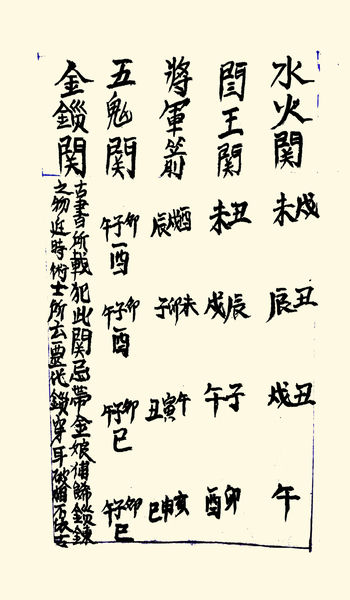 水火関 戌未 丑辰 丑戌 午
閆王関 丑未 辰戌 子午 卯酉
將軍箭 酉戌辰 未卯子 午寅丑 亥申巳
五鬼関 卯子午酉 卯子午酉 卯子午巳 卯子午巳
金鎖関 古書所載犯此関忌帶金娘補飾鎖鍊
之物近時術士所云要代鎖穿耳破相